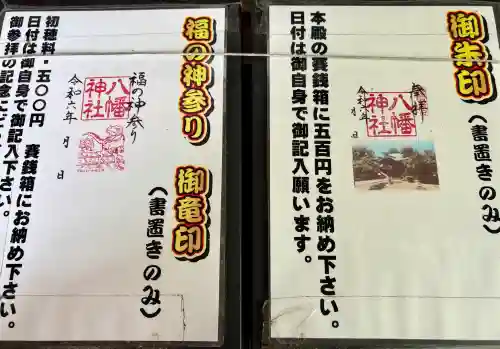 御朱印
(書置きのみ)
奉拝
八幡神社
令和六年 月 日
本殿の賽銭箱に五百円をお納め下さい。
日付は御自身で御記入願います。
福の神参り 御竜印
(書置きのみ)
福の神参り
八幡神社
令和六年 月 日
初穂料・五〇〇円 賽銭箱にお納め下さい。
日付は御自身で御記入下さい。
御参拝の記念にど